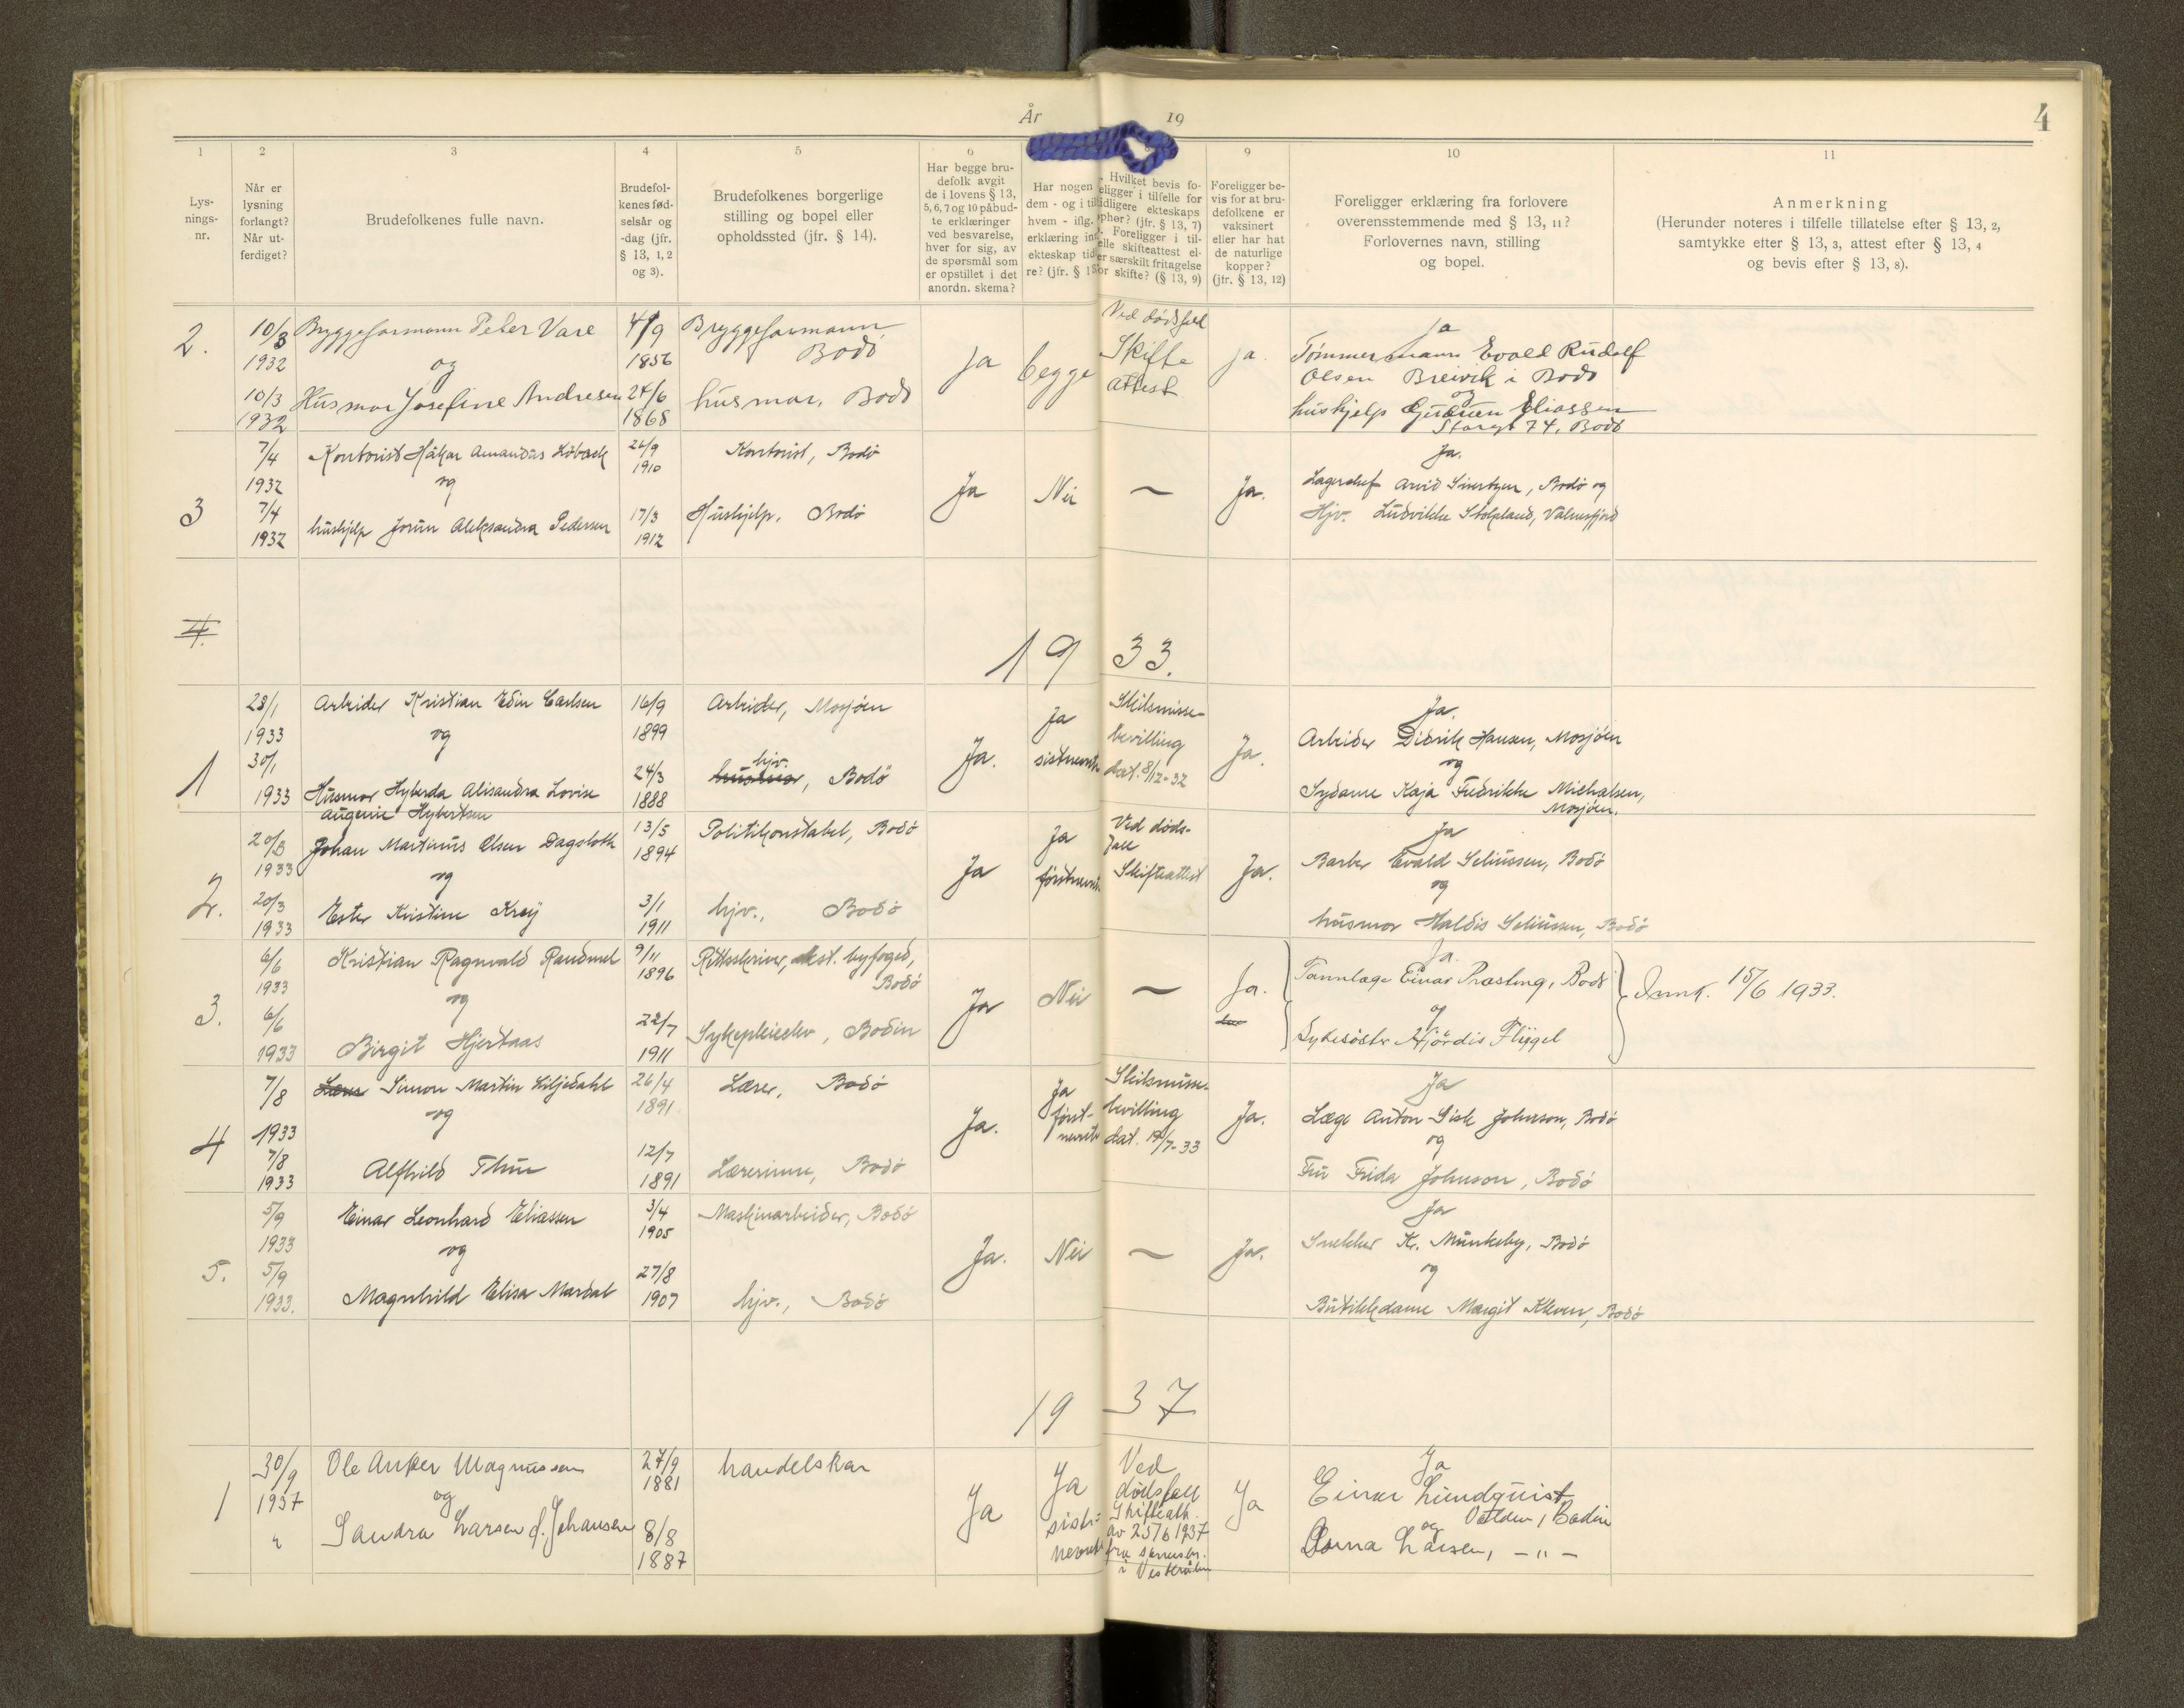 År 19
4
1 2 3 4 5 6 9 10 11
Lys-
nings-
nr.
Når er
lysning
forlangt?
Når ut-
ferdiget?
Brudefolkenes fulle navn.
Brudefol-
kenes fød-
selsår og
-dag (jfr.
§ 13, 1, 2
og 3).
Brudefolkenes borgerlige
stilling og bopel eller
opholdssted (jfr. § 14).
Har begge bru-
defolk avgit
de i lovens § 13,
5, 6, 7 og 10 påbud-
te erklæringer
ved besvarelse,
hver for sig, av
de spørsmål som
er opstillet i det
anordn. skema?
Har nogen
dem - og i til
hvem - iflg.
erklæring in
ekteskap tid
re? (jfr. § 1
Hvilket bevis fo-
eligger i tilfelle for
tidligere ekteskaps
ophør? (jfr. § 13, 7)
Foreligger i til-
elle skifteattest el-
er særskilt fritagelse
for skifte? (§ 13, 9)
Foreligger be-
vis for at bru-
defolkene er
vaksinert
eller har hat
de naturlige
kopper?
(jfr. § 13, 12)
Foreligger erklæring fra forlovere
overensstemmende med § 13, 11?
Forlovernes navn, stilling
og bopel.
Anmerkning
(Herunder noteres i tilfelle tillatelse efter § 13, 2,
samtykke efter § 13, 3, attest efter § 13, 4
og bevis efter § 13, 8).
2.
10/3
1932
10/3
1932
Bryggeformann Peter Vare
og
Husmor Josefine Andresen
4/9
1856
24/6
1868
Bryggeformann
Bodö
husmor, Bodö
Ja
begge
Ved dödsfall
Skifte
attest
ja.
Ja
Tömmermann Evald Rudolf
Olsen Breivik i Bodö
og
hushjelp Gudrun Eliassen
Storgt 74, Bodö
3
7/4
1932
7/4
1932
Kontorist Håkon Amandus Löbach
og
hushjelp Jorun Aleksandra Pedersen
26/9
1910
17/3
1912
Kontorist, Bodø
Hushjelp, Bodø
Ja
Nei
—
Ja.
Ja.
Lagerchef Arvid Sivertsen, Bodø og
Hjv. Ludvikke Stolpland, Valnesfjord
4.
19 33.
1
28/1
1933
30/1
1933
Arbeider Kristian Edin Carlsen
og
Husmor Hyberda Alisandra Lovise
Augenie Hybertsen
16/9
1899
24/3
1888
Arbeider, Mosjøen
hjv.
husmor, Bodö
Ja.
Ja
sistnevnte
Skilsmisse-
bevilling
dat. 8/12-32
Ja.
Ja.
Arbeider Didrik Hansen, Mosjöen
og
Sydame Kaja Fredrikke Michalsen,
Mosjöen.
2.
20/3
1933
20/3
1933
Johan Martinus Olsen Dagsloth
og
Ester Kristine Krey
13/5
1894
3/1
1911
Politikonstabel, Bodö
hjv., Bodö
Ja
Ja
förstnevnte
Ved døds-
fall
Skifteattest
Ja.
Ja
Barber Evald Seliussen, Bodö
og
husmor Haldis Seliussen, Bodö
3.
6/6
1933
6/6
1933
Kristian Ragnvald Raudmel
og
Birgit Hjertaas
9/11
1896
22/7
1911
Rettsskriver, kst. byfoged,
Bodö
Sykepleieelev, Bodin
Ja
Nei
—
Ja.
Ja.
Tannlæge Einar Præsteng, Bodö
og
Sykesöster Hjördis Flügel
Innk. 15/6 1933.
4
7/8
1933
7/8
1933
Lærer Simon Martin Liljedahl
og
Alfhild Thue
26/4
1891
12/7
1891
Lærer, Bodö
Lærerinne, Bodö
Ja.
Ja
först-
nevnte
Skilsmisse-
bevilling
dat. 19/7-33
Ja.
Ja
Læge Anton Sisk Johnson, Bodö
og
Fru Frida Johnson, Bodö
5.
5/9
1933
5/9
1933.
Einar Leonhard Eliassen
og
Magnhild Elisa Mardal
3/4
1905
27/8
1907
Maskinarbeider, Bodö
hjv., Bodö
Ja.
Nei
—
Ja.
Ja
Snekker Kr. Munkeby, Bodö
og
Butikkdame Margit Kleven, Bodö
19 37
1
30/9
1937
"
Ole Anker Magnussen
og
Sandra Larsen f. Johansen
27/9
1881
8/8
1887
handelskar
Ja
Ja
sist-
nevnte
Ved
dödsfall
Skifteatt.
av 25/6 1937
fra sorenskr.
i Vesterålen
Ja
Ja
Einar Lundquist,
Valden, Bodin
og
Larsen, — " —